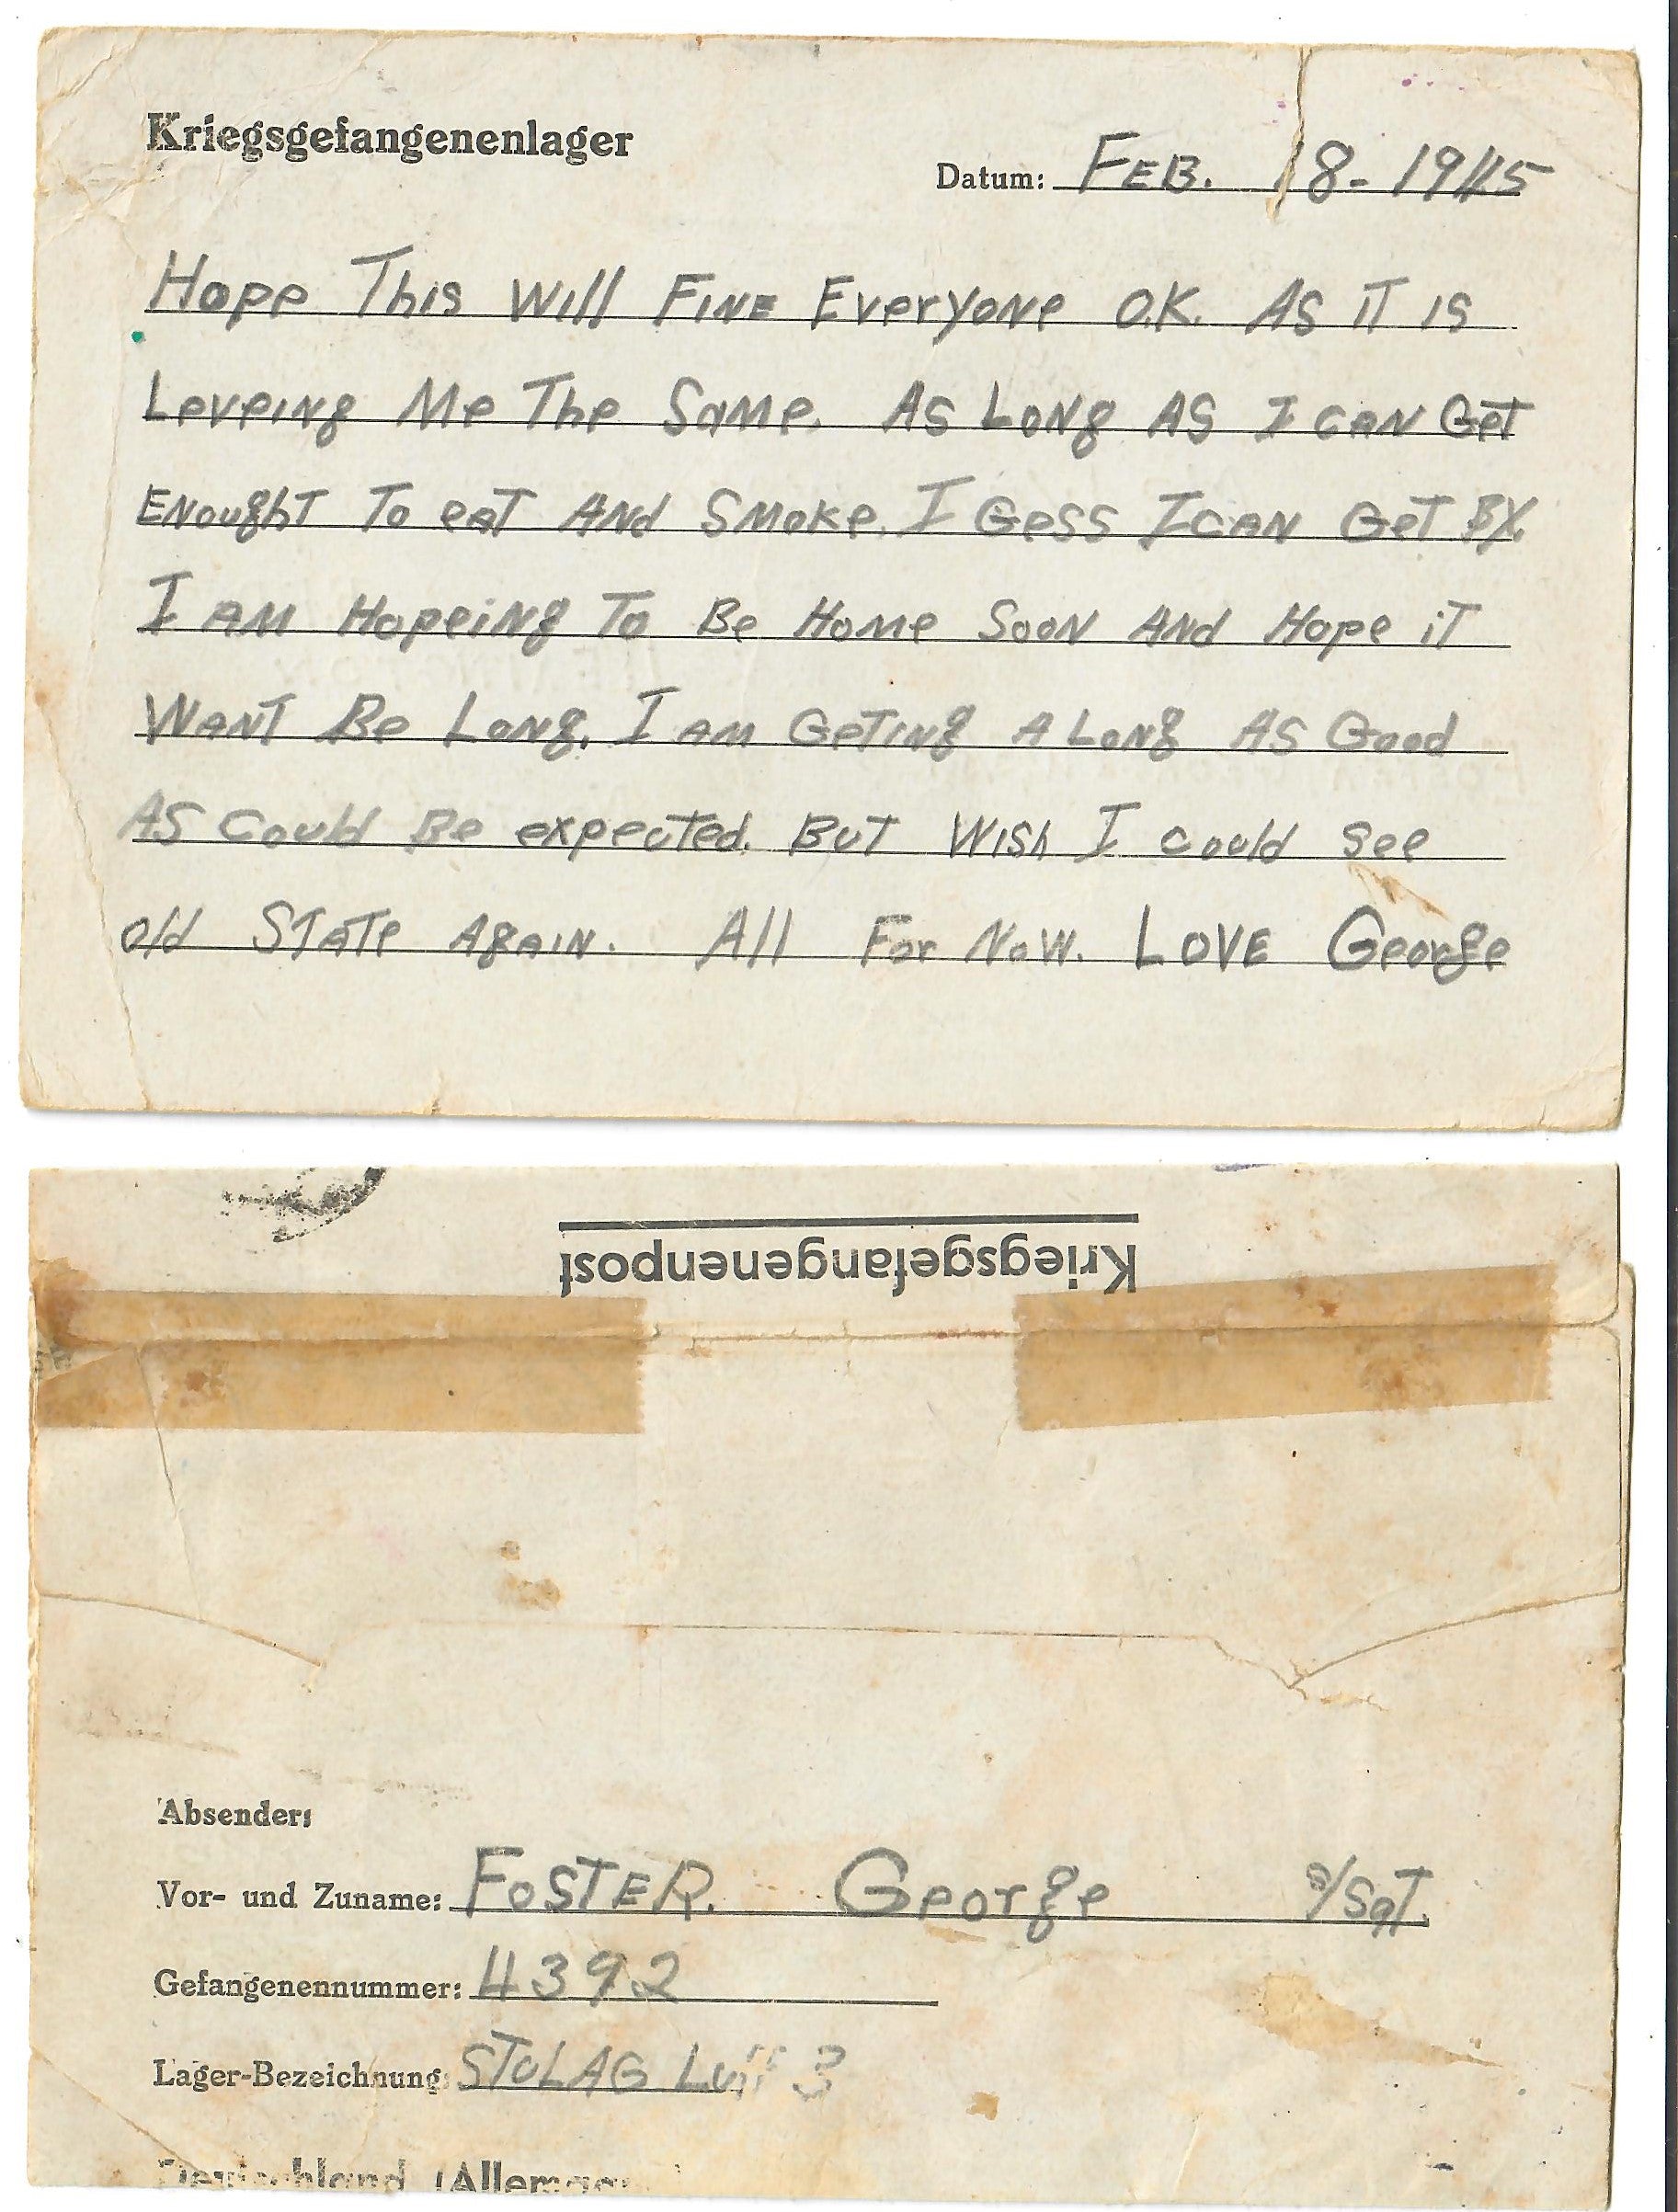 Kriegsgefangenenlager
Datum: FEB. 18-1945
Hope This Will FINE Everyone O.K. AS iT is
Leveing Me The Same. AS Long AS I can Get
Enought To eat And Smoke. I Gess I can Get BY.
I AM Hopeing To Be Home Soon And Hope iT
Want Be Long. I am Geting A Long AS Good
AS Could Be expected. But Wish I could see
old State Again. All For Now. LOVE George
Kriegsgefangenenpost
Absender:
Vor- und Zuname: FOSTER. George S/SgT.
Gefangenennummer: 4392
Lager-Bezeichnung: STULAG Luft 3
Deutschland